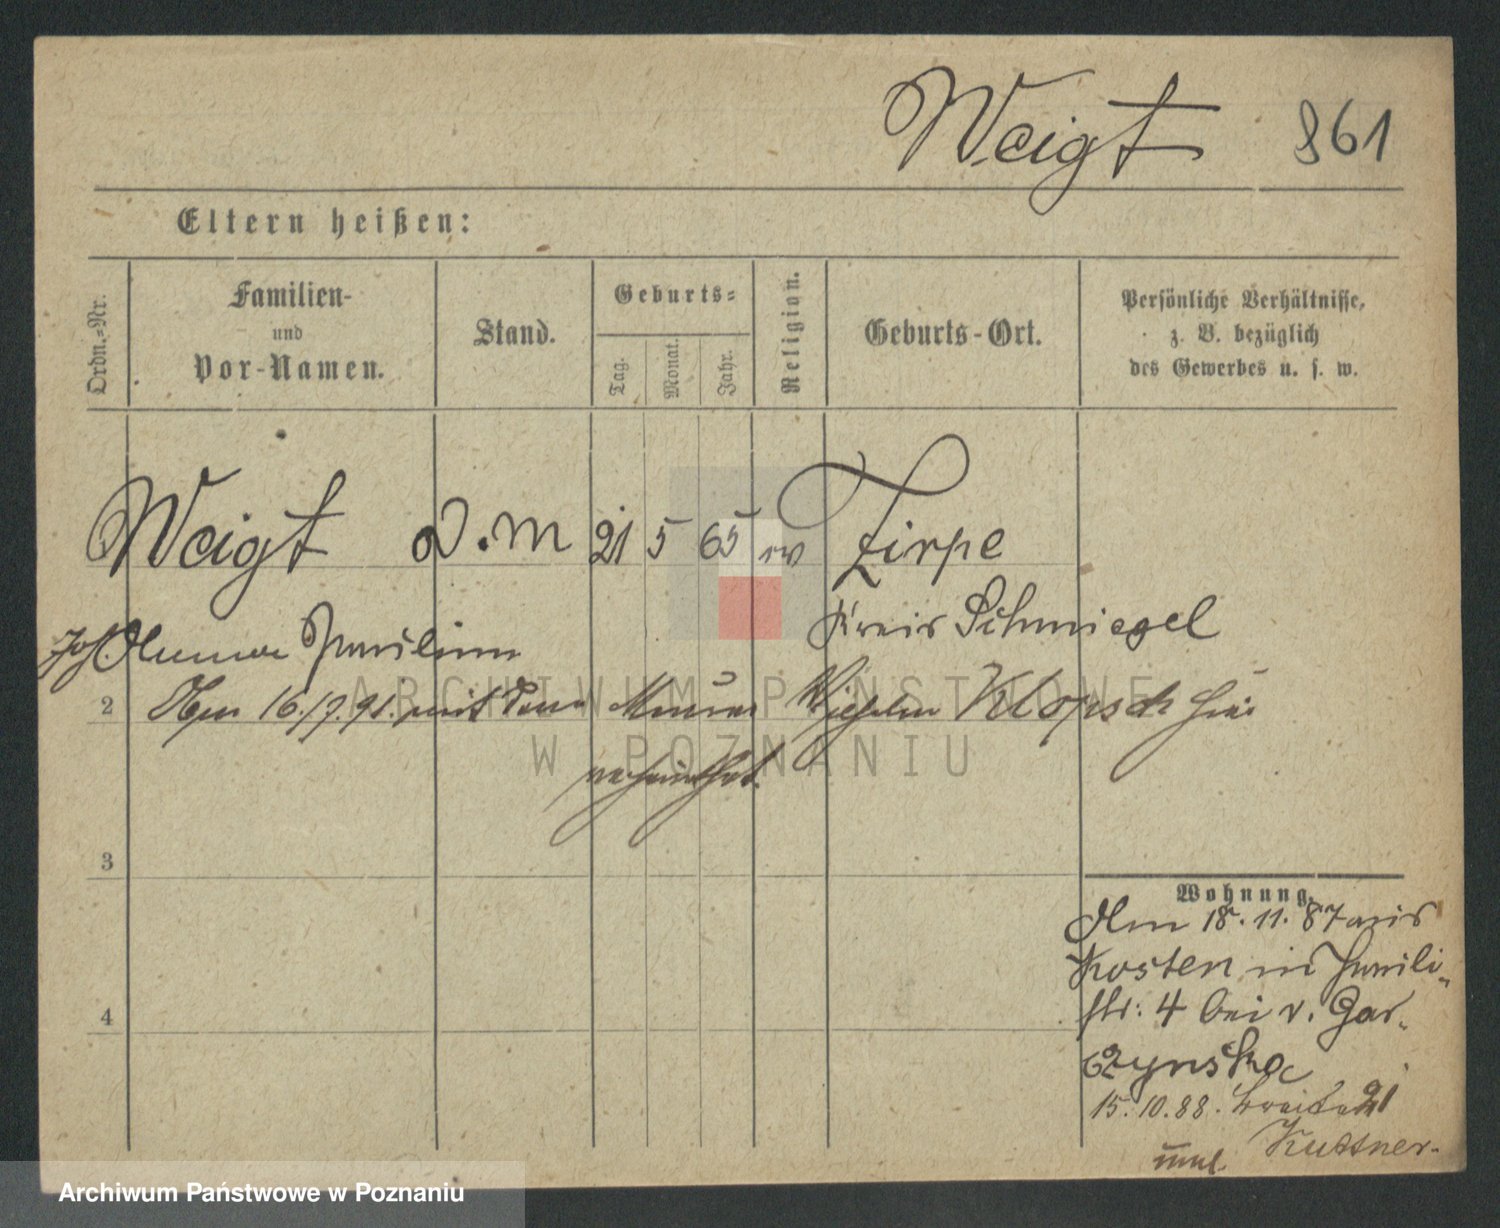 Weigt 861
Eltern heißen:
Ordn.-Nr.
Familien-
und
Vor-Namen.
Stand.
Geburts-
Tag.
Monat.
Jahr.
Religion.
Geburts-Ort.
Persönliche Verhältnisse,
z. B. bezüglich
des Gewerbes u. s. w.
Weigt D.M 21 5 65 ev Zirpe
Kreis Schmiegel
Joh. Anna Paulina
2 Am 16./9.91. mit dem Maurer Wilhelm Klopsch hier
verheirathet.
3
4
Wohnung.
Am 18.11.87 aus
Kosten in Pauli-
str: 4 bei v. Gar-
czynska
15.10.88. Breite 21
Kuttner.
ARCHIWUM PAŃSTWOWE
W POZNANIU
Archiwum Państwowe w Poznaniu